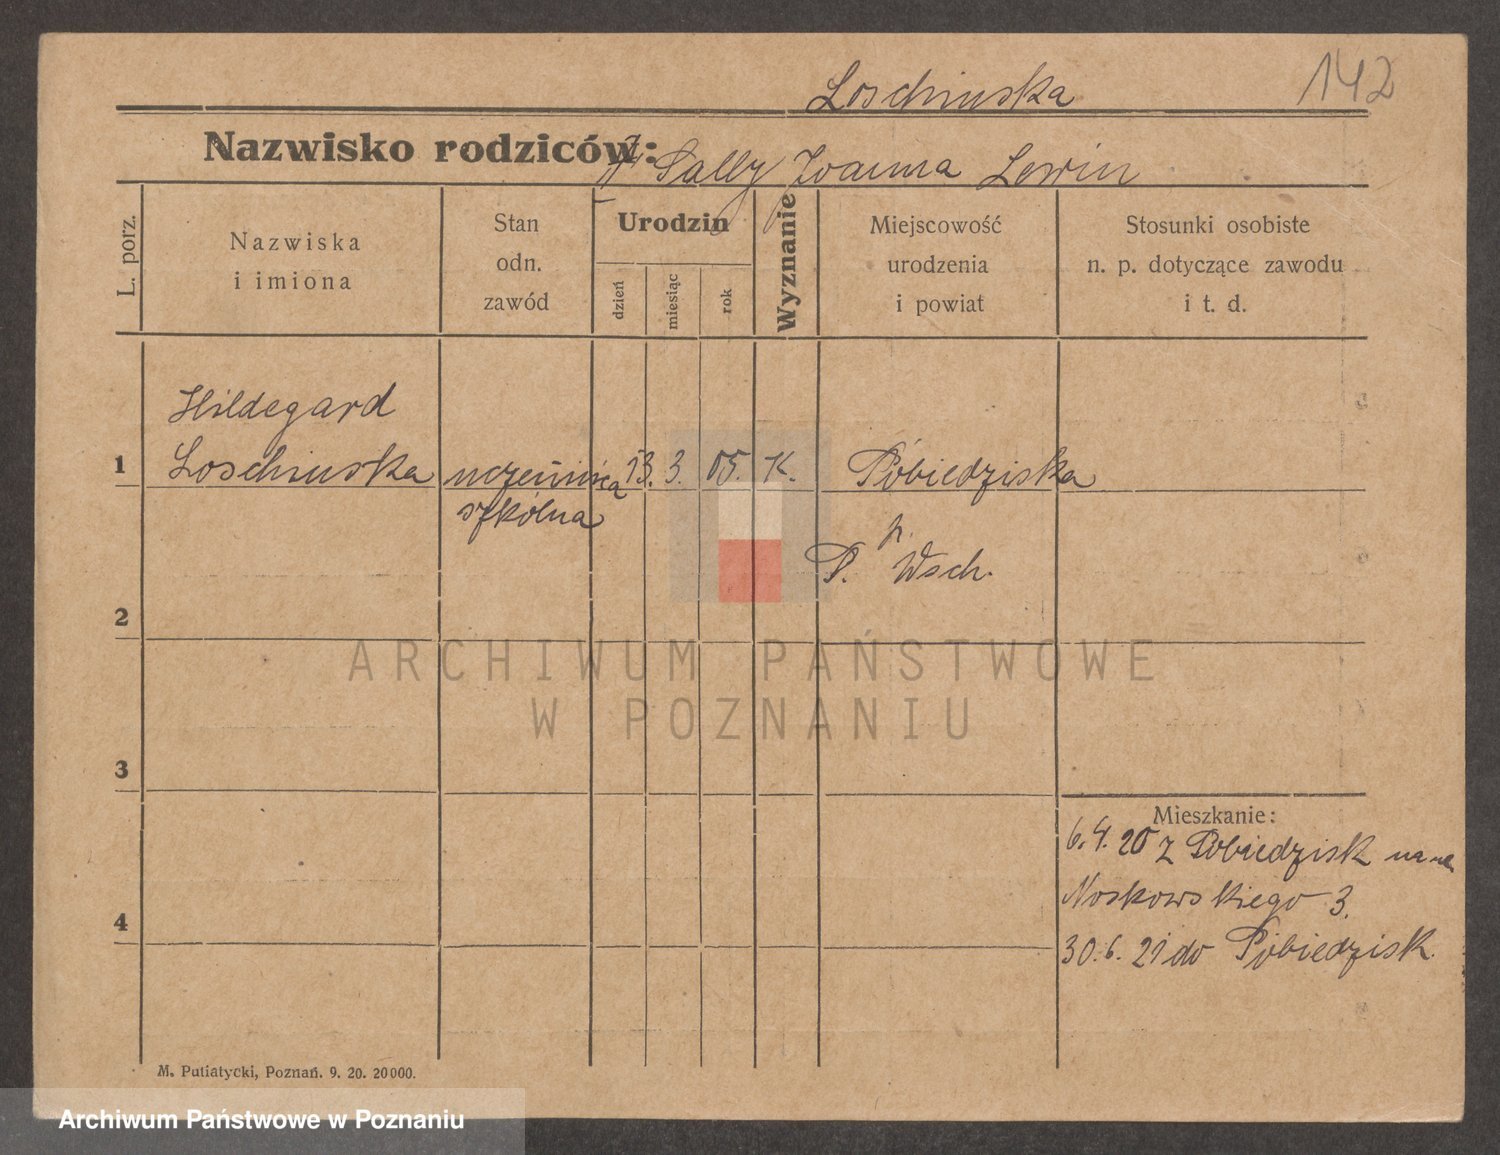 142
Loschinska
Nazwisko rodziców:
Sally Joanna Lewin
L. porz.
Nazwiska
i imiona
Stan
odn.
zawód
Urodzin
dzień
miesiąc
rok
Wyznanie
Miejscowość
urodzenia
i powiat
Stosunki osobiste
n. p. dotyczące zawodu
i t. d.
Hildegard
1 Loschinska uczennica 13. 3. 05. K. Pobiedziska
szkólna
p.
P. Wsch.
2
ARCHIWUM PAŃSTWOWE
W POZNANIU
3
Mieszkanie:
6.4.20 z Pobiedzisk
Noskowskiego 3.
4
30.6.21 do Pobiedzisk.
M. Putiatycki, Poznań. 9. 20. 20000.
Archiwum Państwowe w Poznaniu